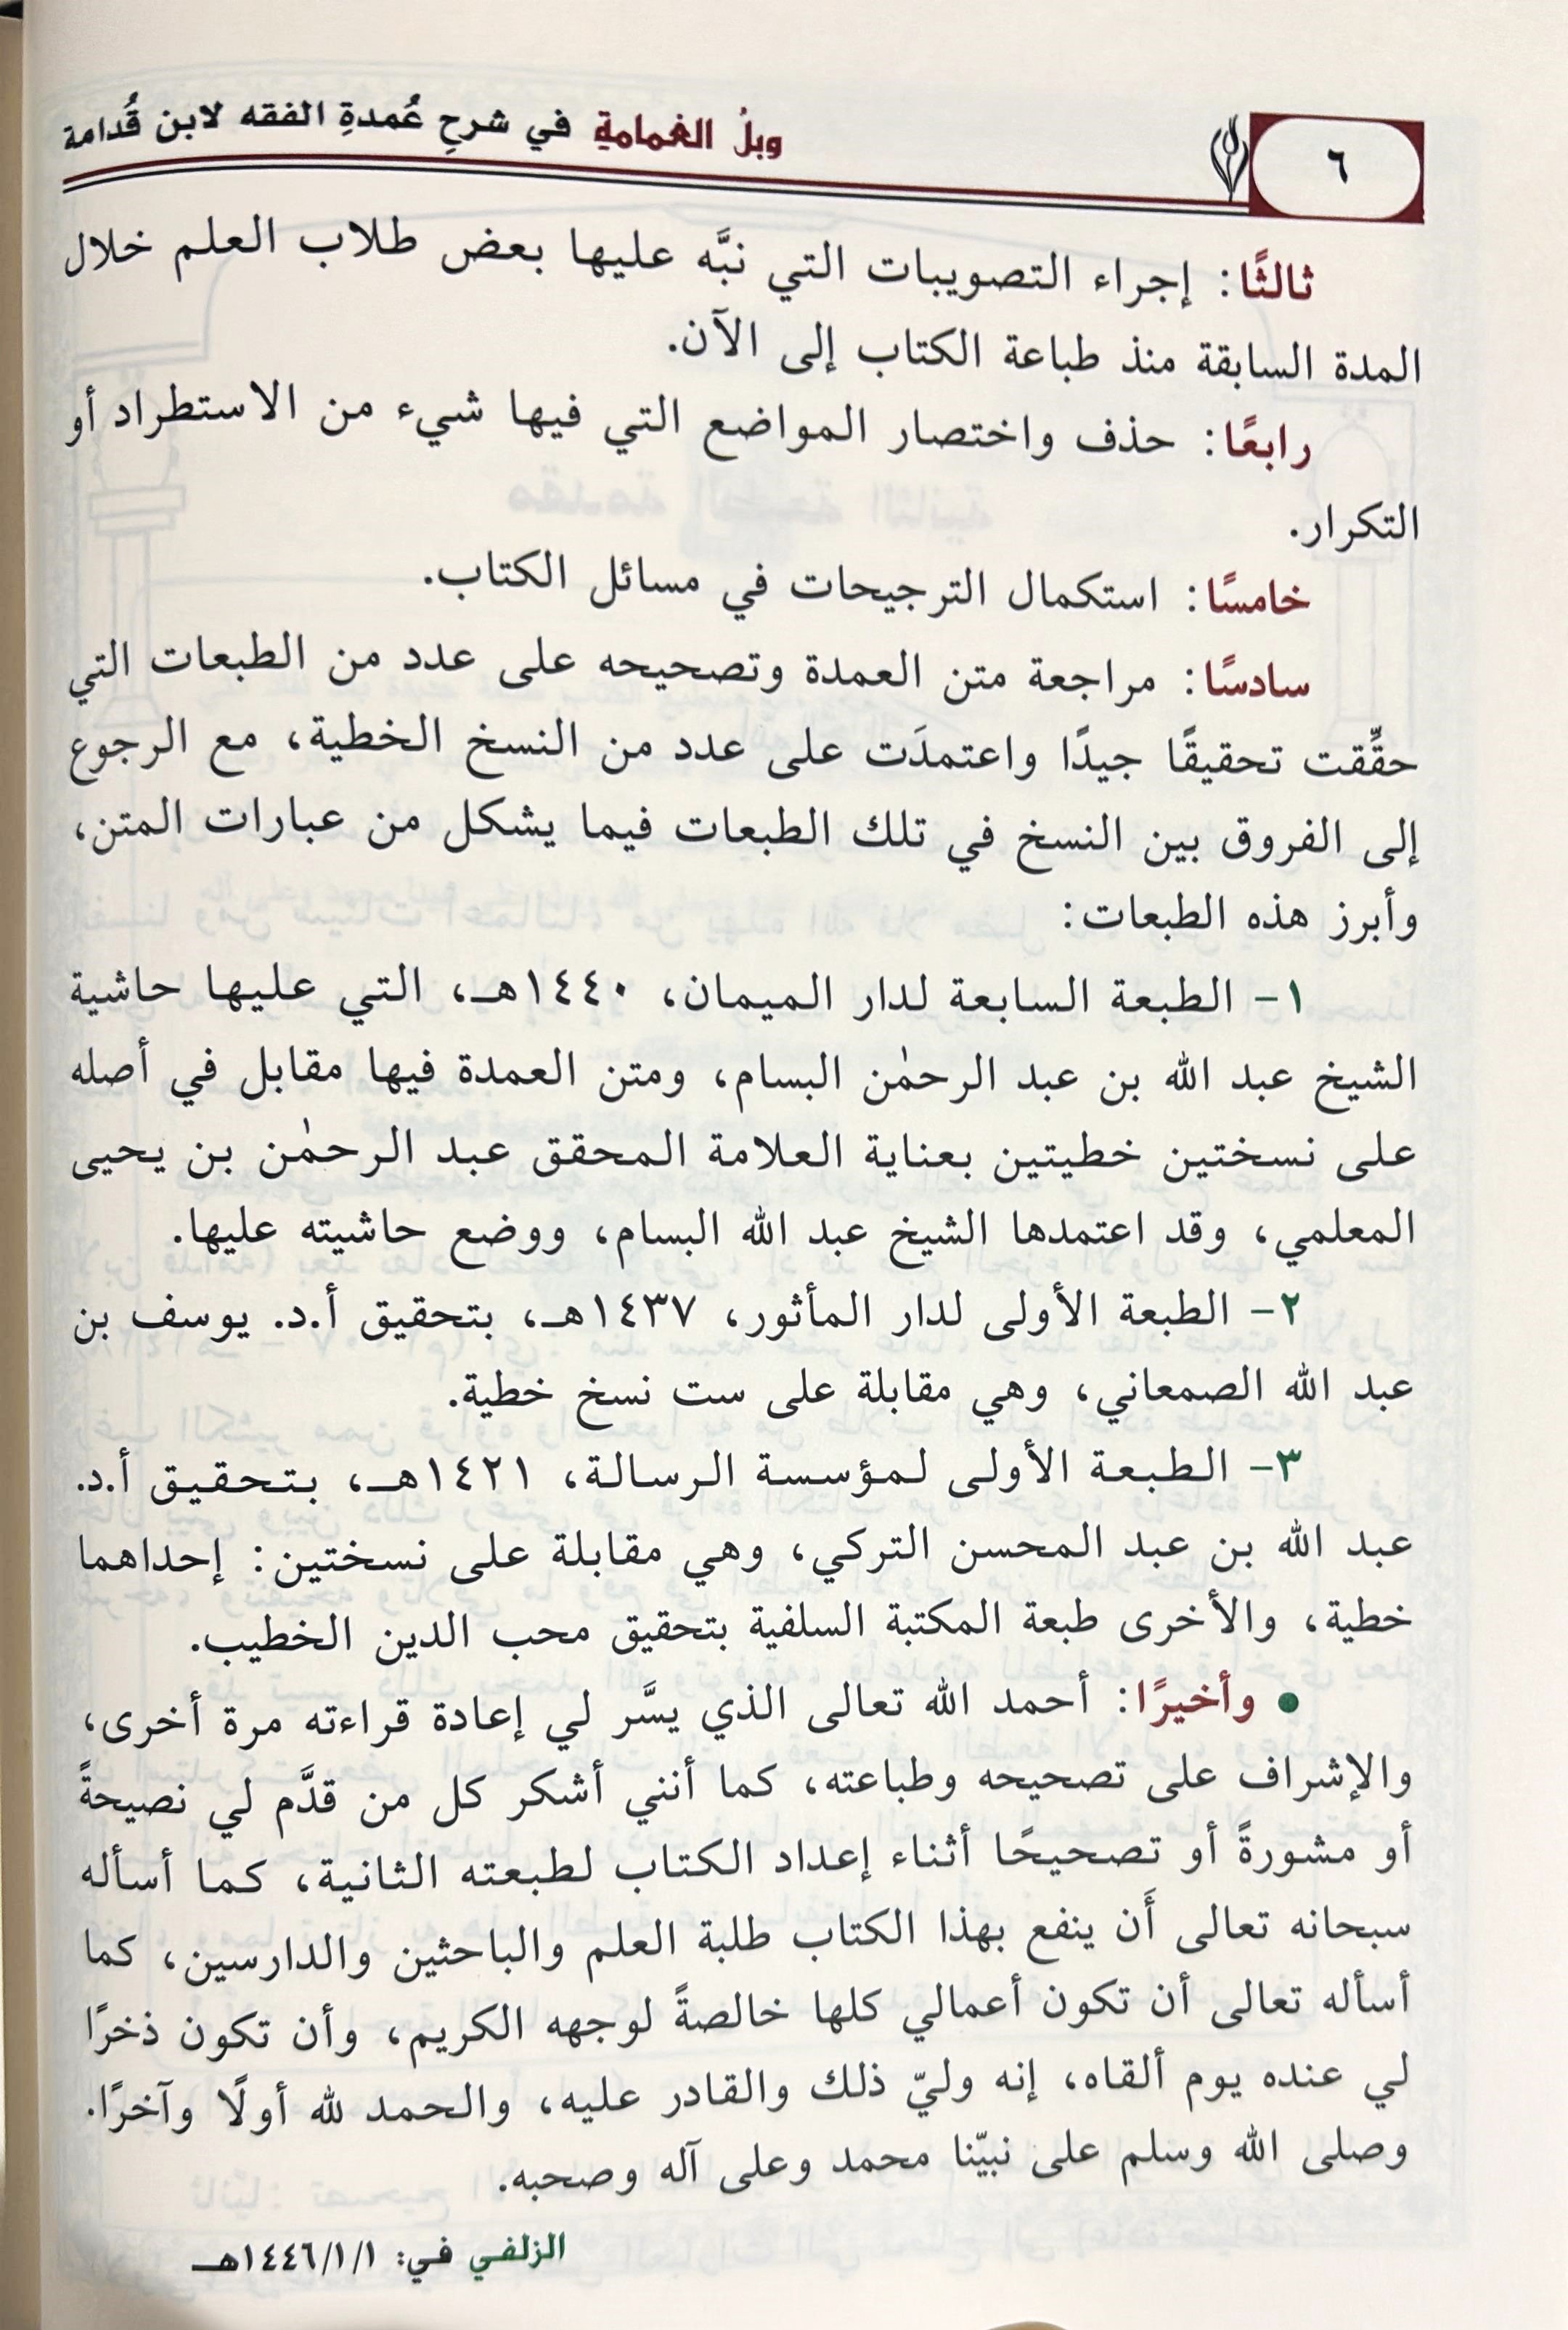 ٦
وبلُ الغمامةِ في شرحِ عُمدةِ الفقه لابن قُدامة
ثالثًا: إجراء التصويبات التي نبَّه عليها بعض طلاب العلم خلال
المدة السابقة منذ طباعة الكتاب إلى الآن.
رابعًا: حذف واختصار المواضع التي فيها شيء من الاستطراد أو
التكرار.
خامسًا: استكمال الترجيحات في مسائل الكتاب.
سادسًا: مراجعة متن العمدة وتصحيحه على عدد من الطبعات التي
حقِّقت تحقيقًا جيدًا واعتمدَت على عدد من النسخ الخطية، مع الرجوع
إلى الفروق بين النسخ في تلك الطبعات فيما يشكل من عبارات المتن،
وأبرز هذه الطبعات:
١- الطبعة السابعة لدار الميمان، ١٤٤٠هـ، التي عليها حاشية
الشيخ عبد الله بن عبد الرحمٰن البسام، ومتن العمدة فيها مقابل في أصله
على نسختين خطيتين بعناية العلامة المحقق عبد الرحمٰن بن يحيى
المعلمي، وقد اعتمدها الشيخ عبد الله البسام، ووضع حاشيته عليها.
٢- الطبعة الأولى لدار المأثور، ١٤٣٧هـ، بتحقيق أ.د. يوسف بن
عبد الله الصمعاني، وهي مقابلة على ست نسخ خطية.
٣- الطبعة الأولى لمؤسسة الرسالة، ١٤٢١هـ، بتحقيق أ.د.
عبد الله بن عبد المحسن التركي، وهي مقابلة على نسختين: إحداهما
خطية، والأخرى طبعة المكتبة السلفية بتحقيق محب الدين الخطيب.
● وأخيرًا: أحمد الله تعالى الذي يسَّر لي إعادة قراءته مرة أخرى،
والإشراف على تصحيحه وطباعته، كما أنني أشكر كل من قدَّم لي نصيحةً
أو مشورةً أو تصحيحًا أثناء إعداد الكتاب لطبعته الثانية، كما أسأله
سبحانه تعالى أَن ينفع بهذا الكتاب طلبة العلم والباحثين والدارسين، كما
أسأله تعالى أن تكون أعمالي كلها خالصةً لوجهه الكريم، وأن تكون ذخرًا
لي عنده يوم ألقاه، إنه وليّ ذلك والقادر عليه، والحمد لله أولًا وآخرًا.
وصلى الله وسلم على نبيّنا محمد وعلى آله وصحبه.
الزلفي في: ١٤٤٦/١/١هـ